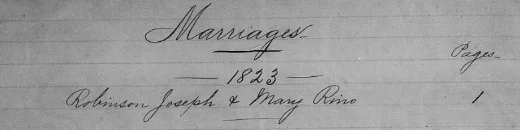 Marriages
Pages
1823
Robinson Joseph & Mary Rino 1